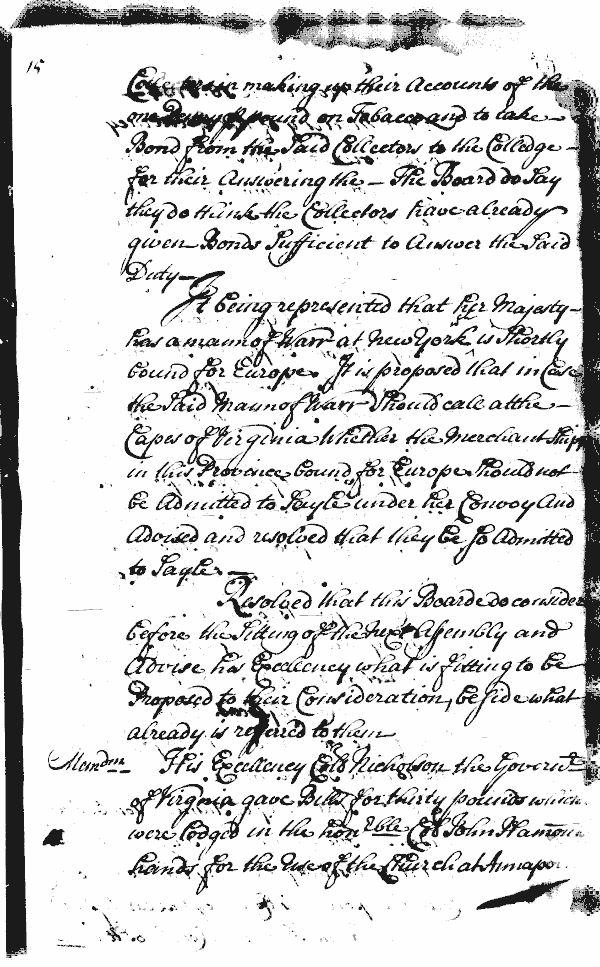 15
Collectors in making up their Accounts of the
one Penny pound on Tobacco and to take
Bond from the Said Collectors to the Colledge
for their Answering the — The Board do Say
they do think the Collectors have already
given Bonds Sufficient to Answer the Said
Duty —
It being represented that her Majesty
has a mann of Warr at New York is Shortly
bound for Europe. It is proposed that in Case
the Said Mann of Warr Should call at the —
Capes of Virginia Whether the Merchant Shipps
in this Province bound for Europe Should not
be Admitted to Sayle under her Convoy And
Advised and resolved that they be so Admitted
to Sayle. —
Resolved that this Board do consider
before the Sitting of the next Assembly and
Advise his Excellency what is fitting to be
Proposed to their Consideration, beside what
already is referred to them
Memdm His Excellency Coll Nicholson the Governr
of Virginia gave Bills for thirty pounds which
were lodged in the honrble Coll John Hamond
hands for the use of the Church at Annapo